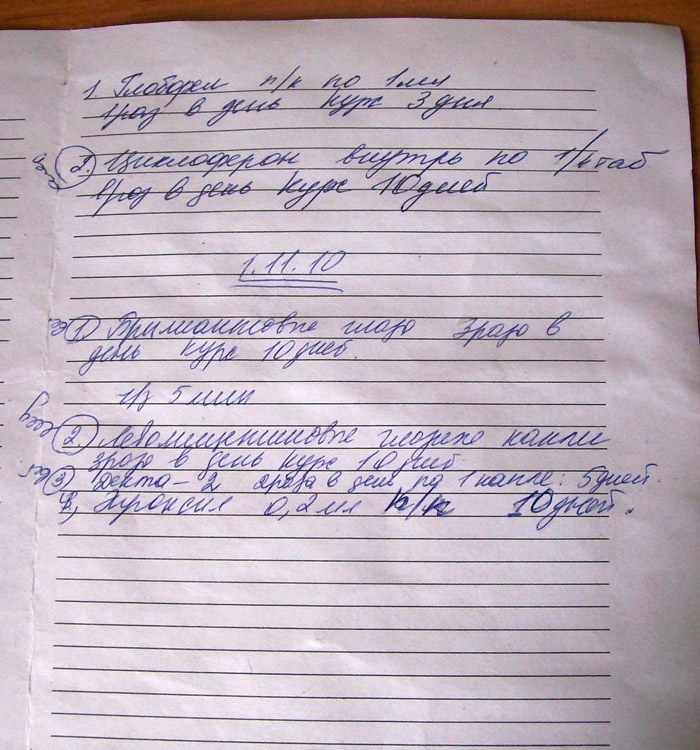 1. Глобфел п/к по 1 мл
1раз в день курс 3 дня
2. Циклоферон внутрь по 1/4 таб
1раз в день курс 10 дней
1.11.10
1) Бриллиантовые глаза 3 раза в
день курс 10 дней.
ч/з 5 мин
2) Левомицетиновые глазные капли
3 раза в день курс 10 дней
3) Декта-2 2 раза в день по 1 капле: 5 дней.
4) 0,2 мл п/к 10 дней.